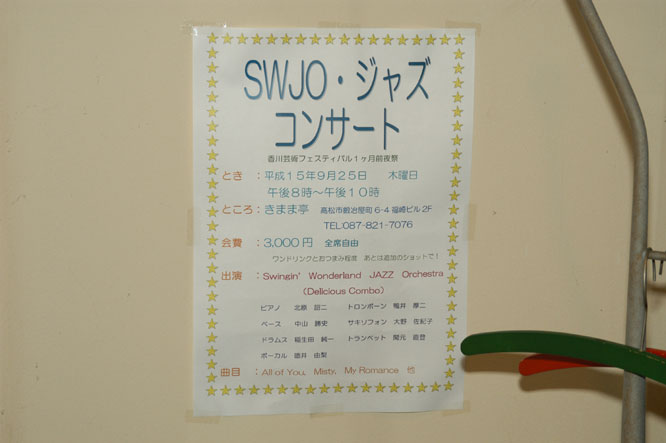 SWJO・ジャズ
コンサート
香川芸術フェスティバル1ヶ月前夜祭
とき：平成15年9月25日　木曜日
午後8時～午後10時
ところ：きまま亭　高松市鍛冶屋町6-4福崎ビル2F
TEL087-821-7076
会費：3,000円　全席自由
ワンドリンクとおつまみ程度　あとは追加のショットで！
出演：Swingin' Wonderland JAZZ Orchestra
（Delicious Combo）
ピアノ　北原　昭二　トロンボーン　鴨井　康二
ベース　中山　勝史　サキソフォン　大野　佐紀子
ドラムス　稲生田　純一　トランペット　間元　
ボーカル　徳井　由梨
曲目：All of You, Misty, My Romance　他